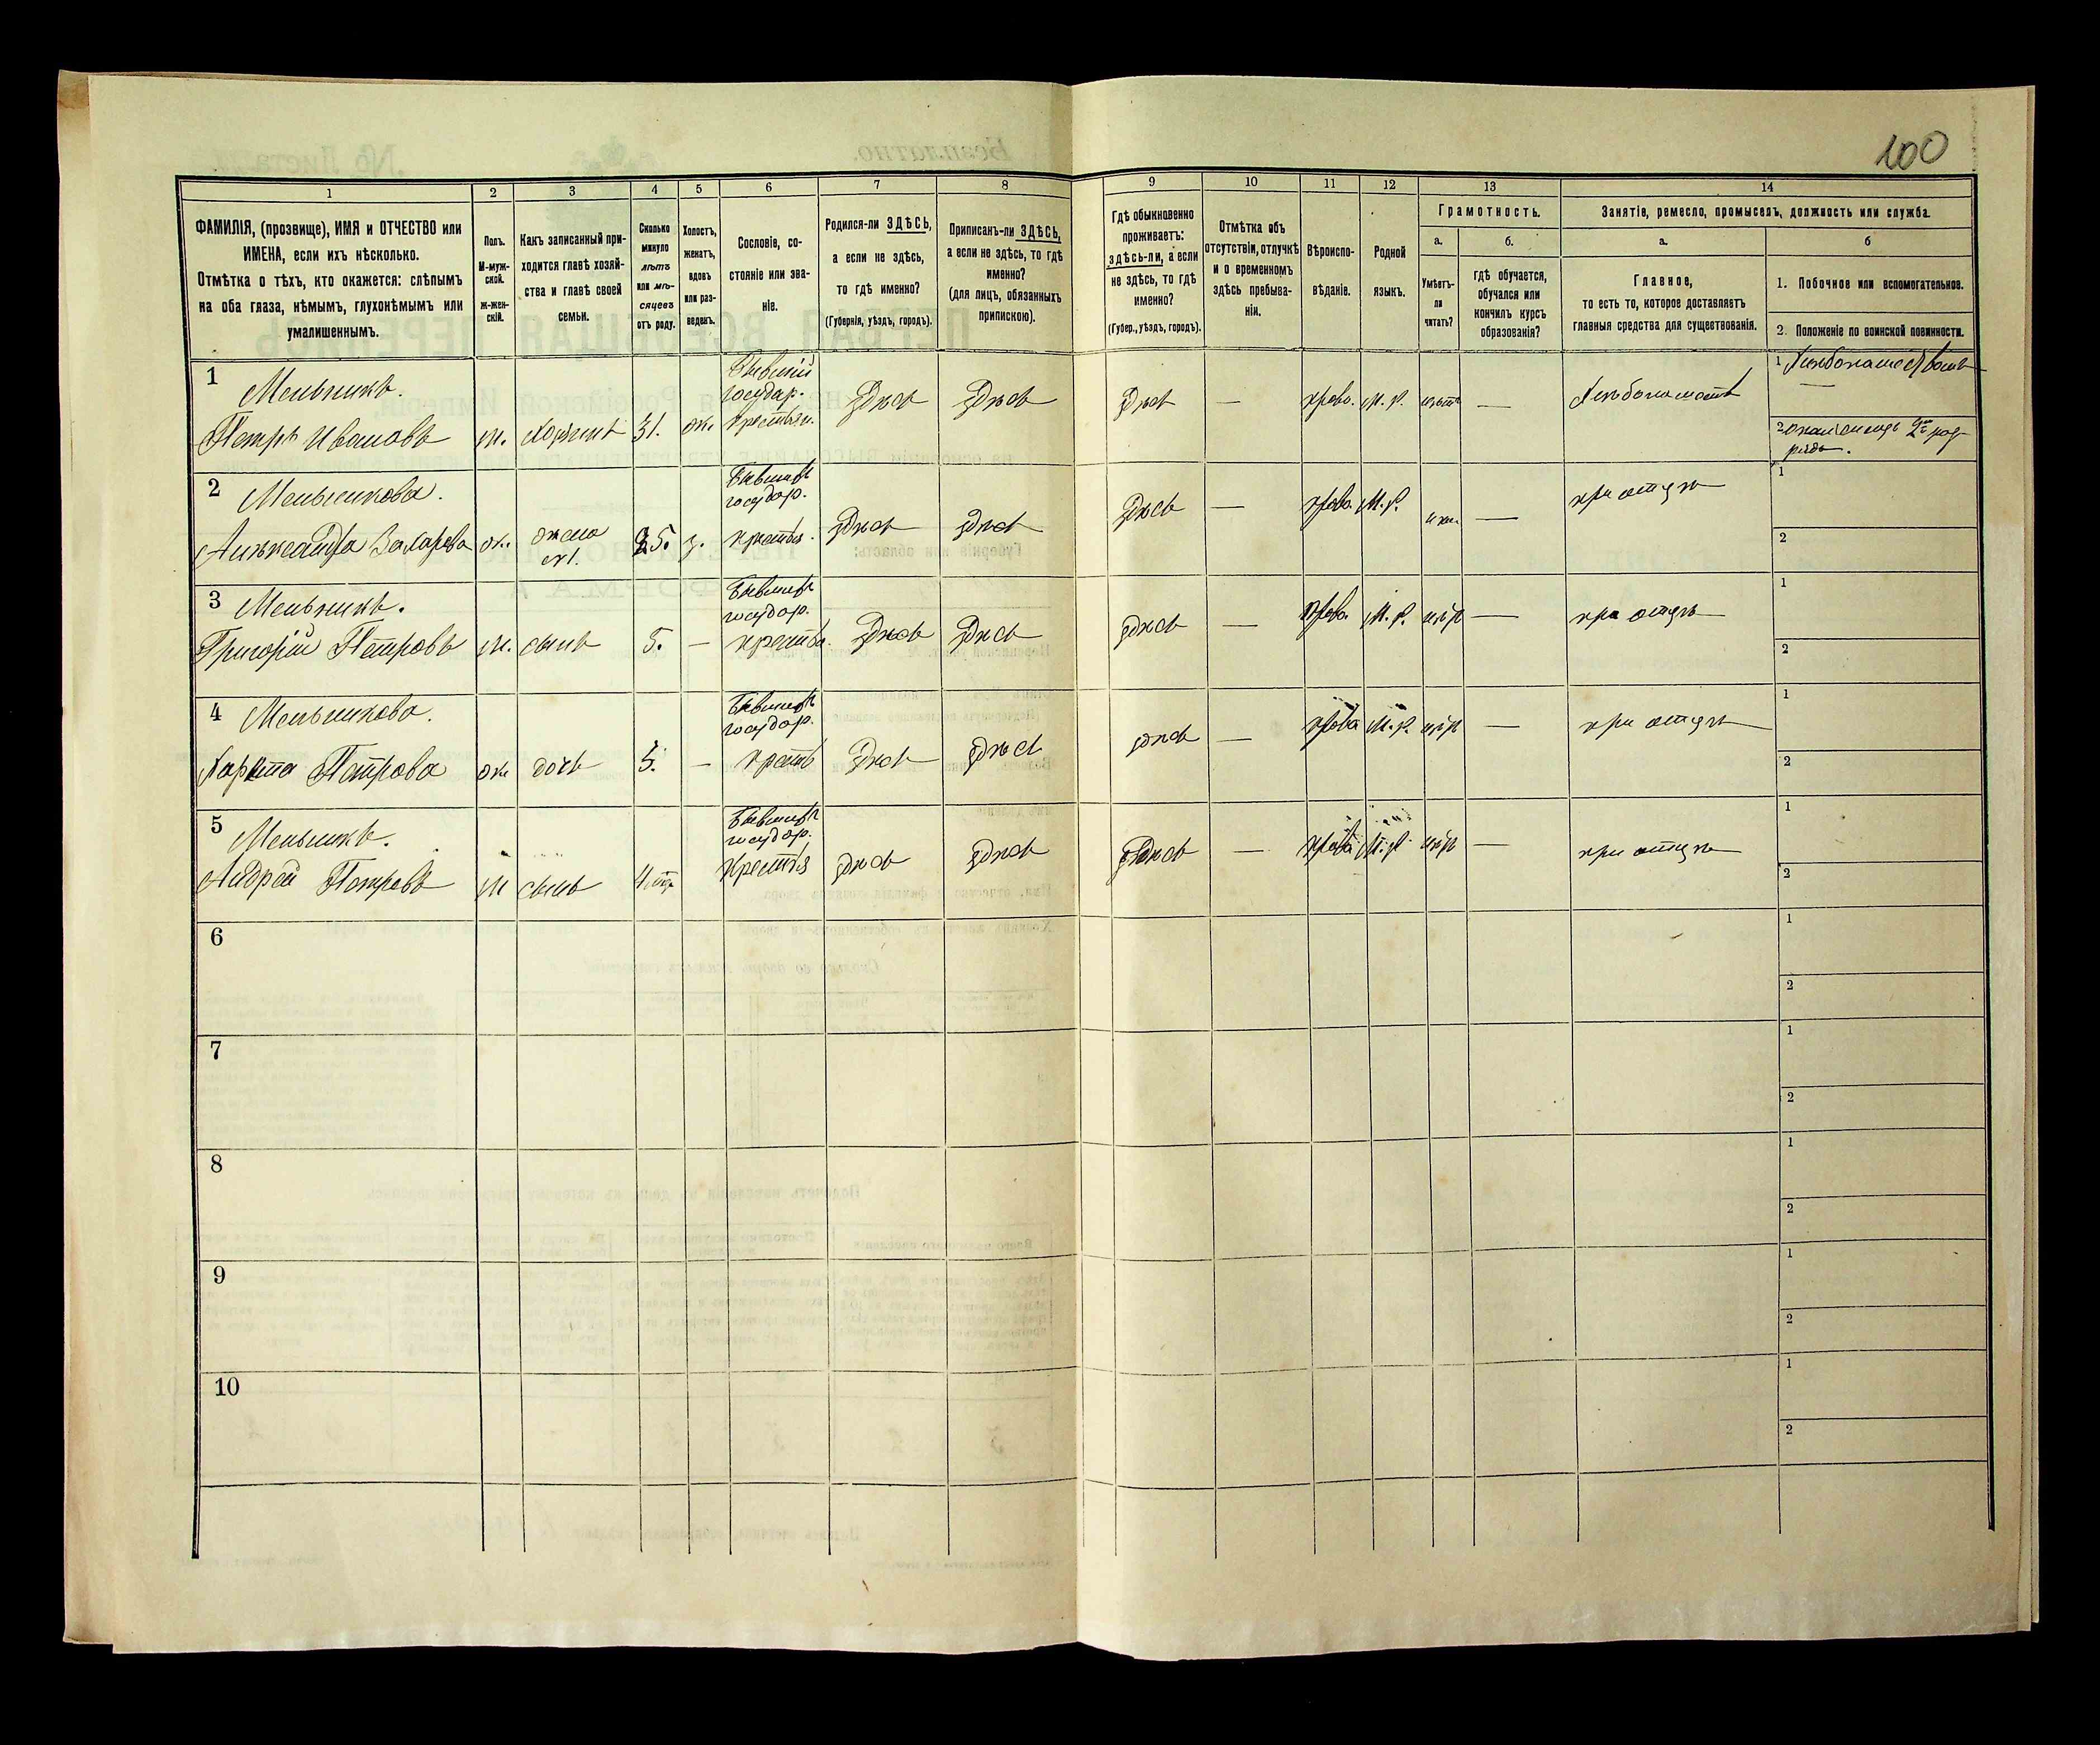 100
1 2 3 4 5 6 7 8 9 10 11 12 13 14
ФАМИЛІЯ, (прозвище), ИМЯ и ОТЧЕСТВО или
ИМЕНА, если ихъ нѣсколько.
Отмѣтка о тѣхъ, кто окажется: слѣпымъ
на оба глаза, нѣмымъ, глухонѣмымъ или
умалишеннымъ.
Полъ.
М-муж-
ской.
ж-жен-
скій.
Какъ записанный при-
ходится главѣ хозяй-
ства и главѣ своей
семьи.
Сколько
минуло
лѣтъ
или мѣ-
сяцевъ
отъ роду.
Холостъ,
женатъ,
вдовъ
или раз-
веденъ.
Сословіе, со-
стояніе или зва-
ніе.
Родился-ли ЗДѢСЬ,
а если не здѣсь,
то гдѣ именно?
(Губернія, уѣздъ, городъ).
Приписанъ-ли ЗДѢСЬ,
а если не здѣсь, то гдѣ
именно?
(для лицъ, обязанныхъ
припискою).
Гдѣ обыкновенно
проживаетъ:
здѣсь-ли, а если
не здѣсь, то гдѣ
именно?
(Губер., уѣздъ, городъ).
Отмѣтка объ
отсутствіи, отлучкѣ
и о временномъ
здѣсь пребыва-
ніи.
Вѣроиспо-
вѣданіе.
Родной
языкъ.
Грамотность.
а.
Умѣетъ-
ли
читать?
б.
гдѣ обучается,
обучался или
кончилъ курсъ
образованія?
Занятіе, ремесло, промыселъ, должность или служба.
а.
Главное,
то есть то, которое доставляетъ
главныя средства для существованія.
б
1. Побочное или вспомогательное.
2. Положеніе по воинской повинности.
1 Мельникъ.
Петръ Ивановъ м. хозяинъ 31. ж.
Бывшій
государ.
крестьян.
здѣсь здѣсь здѣсь — право. М. Р. нѣтъ — Хлѣбопашество
1
2
2 Мельникова.
Александра Захарова ж. жена 25. з.
государ.
здѣсь здѣсь здѣсь — право. М. Р. — при отцѣ
1
2
3 Мельникъ.
Григорій Петровъ м. сынъ 5. —
государ.
здѣсь здѣсь здѣсь — право. М. Р. — при отцѣ
1
2
4 Мельникова.
Петрова ж. дочь 3. —
государ.
здѣсь здѣсь здѣсь — права М. Р. — при отцѣ
1
2
5 Мельникъ.
Андрей Петровъ м сынъ
государ.
здѣсь здѣсь здѣсь — права М. Р. — при отцѣ
1
2
6
1
2
7
1
2
8
1
2
9
1
2
10
1
2